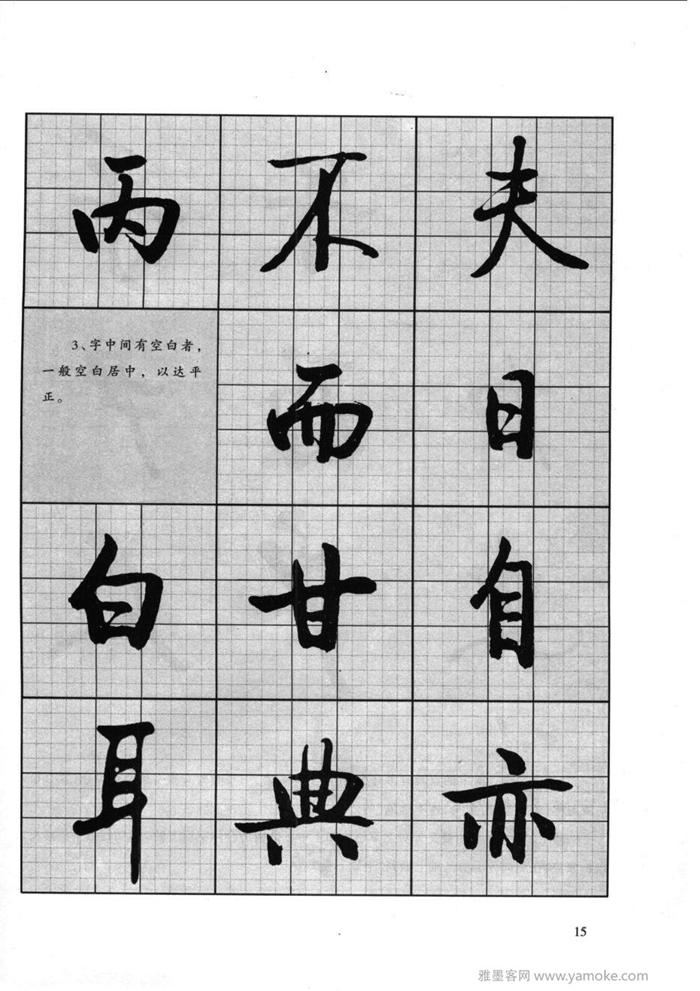 丙 不 夫
3、字中间有空白者，
一般空白居中，以达平
正。
而 日
白 甘 自
耳 典 亦
15
雅墨客网 www.yamoke.com